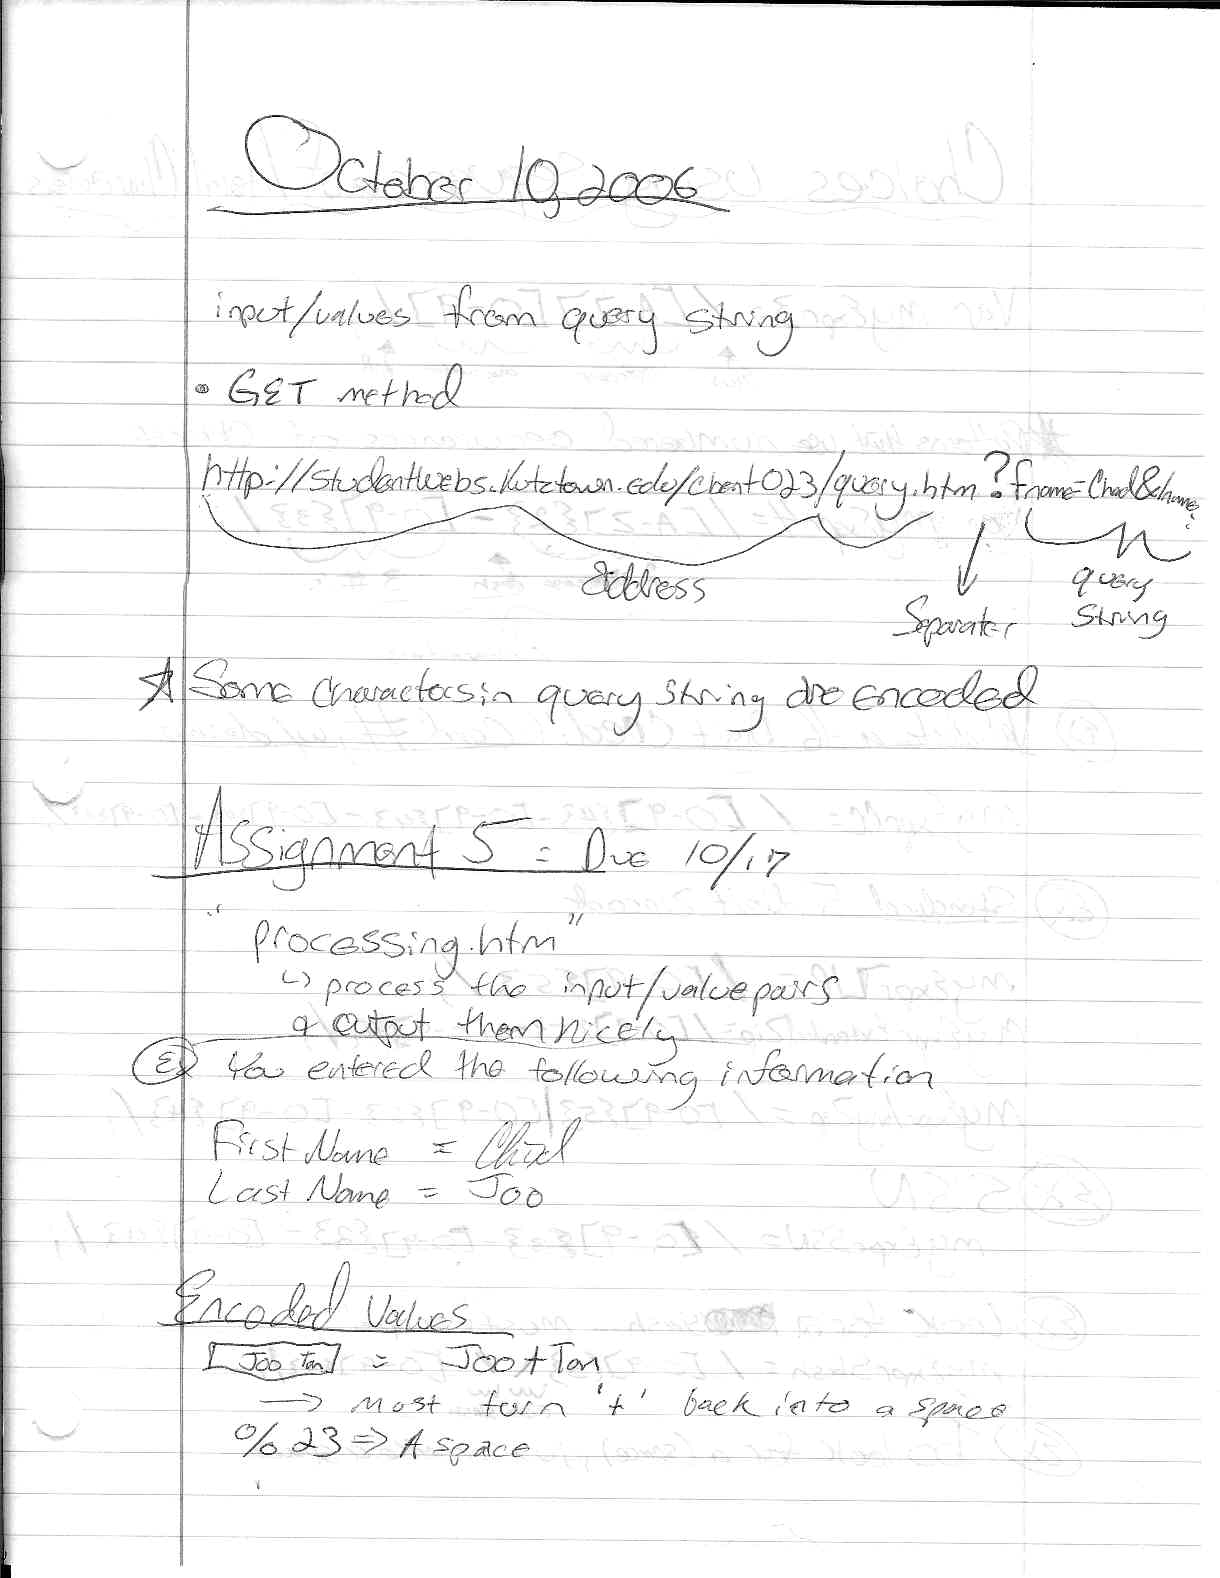 October 10, 2006
input/values from query string
• GET method
http://studentwebs.kutztown.edu/cbent023/query.htm?fname=Chad&lname=
address
Separater
query
String
☆ Some characters in query string are encoded
Assignment 5 = Due 10/17
"processing.htm"
↳ process the input/value pairs
& output them nicely
Ex You entered the following information
First Name = Chad
Last Name = Joo
Encoded Values
Joo Tan = Joo+Tan
→ must turn '+' back into a space
%23 => A space